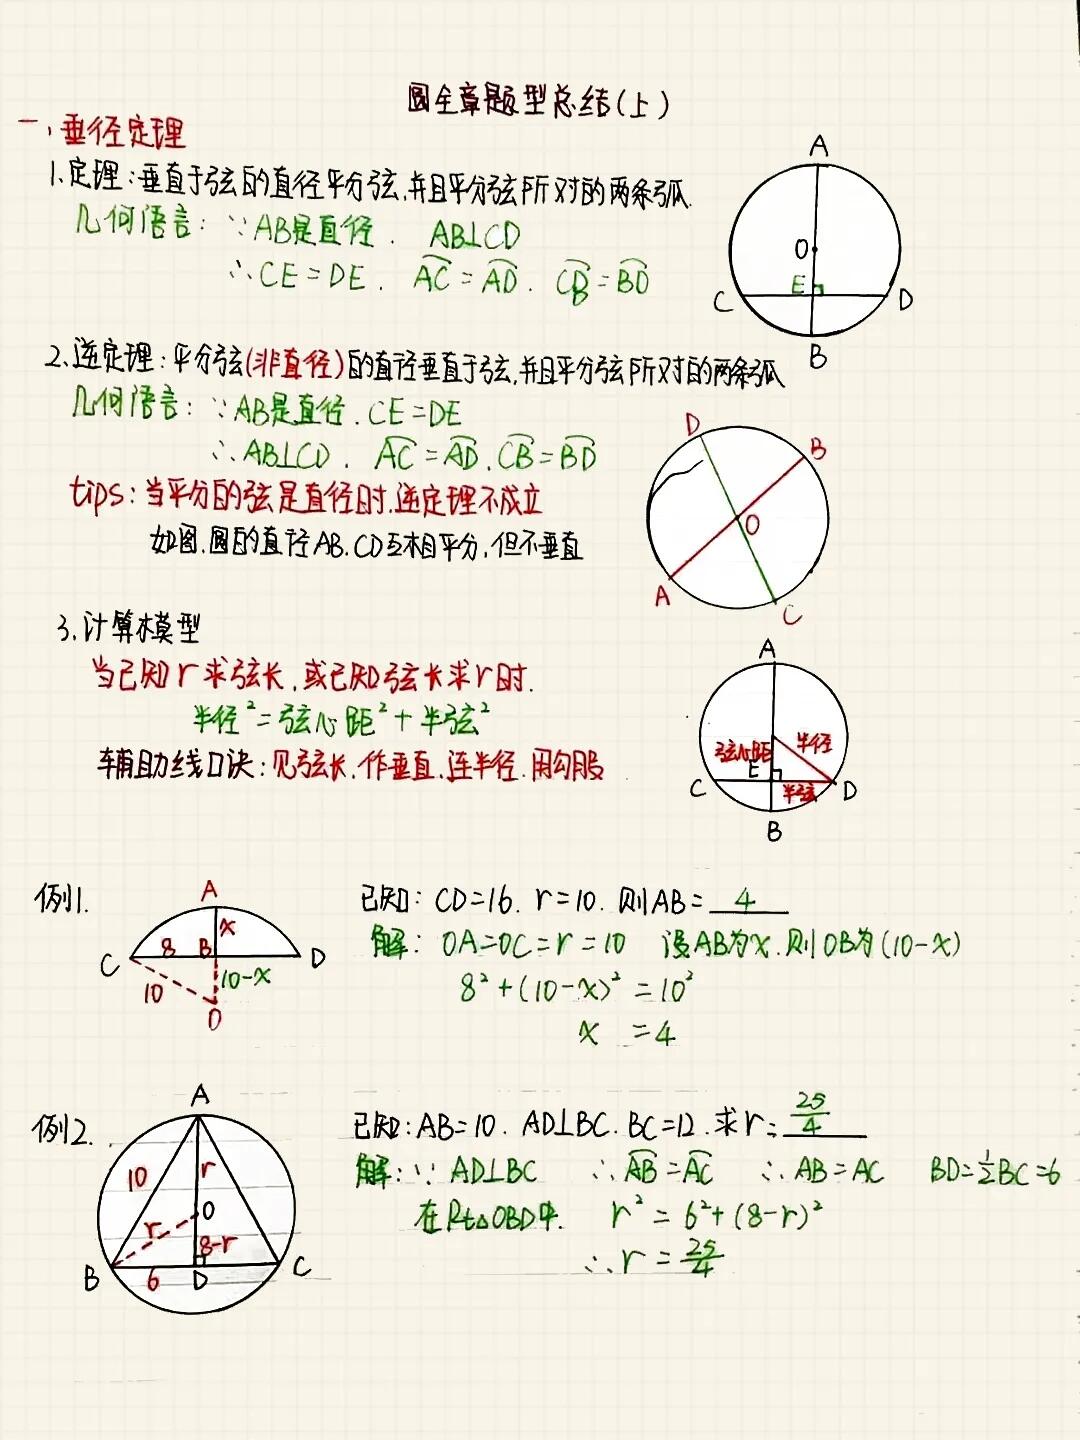 圆全章题型总结(上)
一、垂径定理
1.定理:垂直于弦的直径平分弦,并且平分弦所对的两条弧.
几何语言: ∵AB是直径. AB⊥CD
∴CE=DE. A͡C=A͡D. C͡B=B͡D
A
O
E
C
D
B
2.逆定理:平分弦(非直径)的直径垂直于弦,并且平分弦所对的两条弧
几何语言: ∵AB是直径.CE=DE
∴AB⊥CD. A͡C=A͡D.C͡B=B͡D
tips:当平分的弦是直径时.逆定理不成立
如图.圆的直径AB.CD互相平分,但不垂直
D
B
O
A
C
3.计算模型
当已知r求弦长,或已知弦长求r时.
半径²=弦心距²+半弦²
辅助线口诀:见弦长,作垂直,连半径.用勾股
A
弦心距
半径
E
C
半弦
D
B
例1.
A
x
8
B
C
D
10
10-x
O
已知: CD=16. r=10. 则AB=4
解: OA=OC=r=10 设AB为x.则OB为(10-x)
8²+(10-x)²=10²
x =4
例2.
A
10
r
O
r
8-r
B
6
D
C
已知:AB=10. AD⊥BC. BC=12.求r=25/4
解:∵AD⊥BC ∴A͡B=A͡C ∴AB=AC BD=½BC=6
在Rt△OBD中. r²=6²+(8-r)²
∴r=25/4